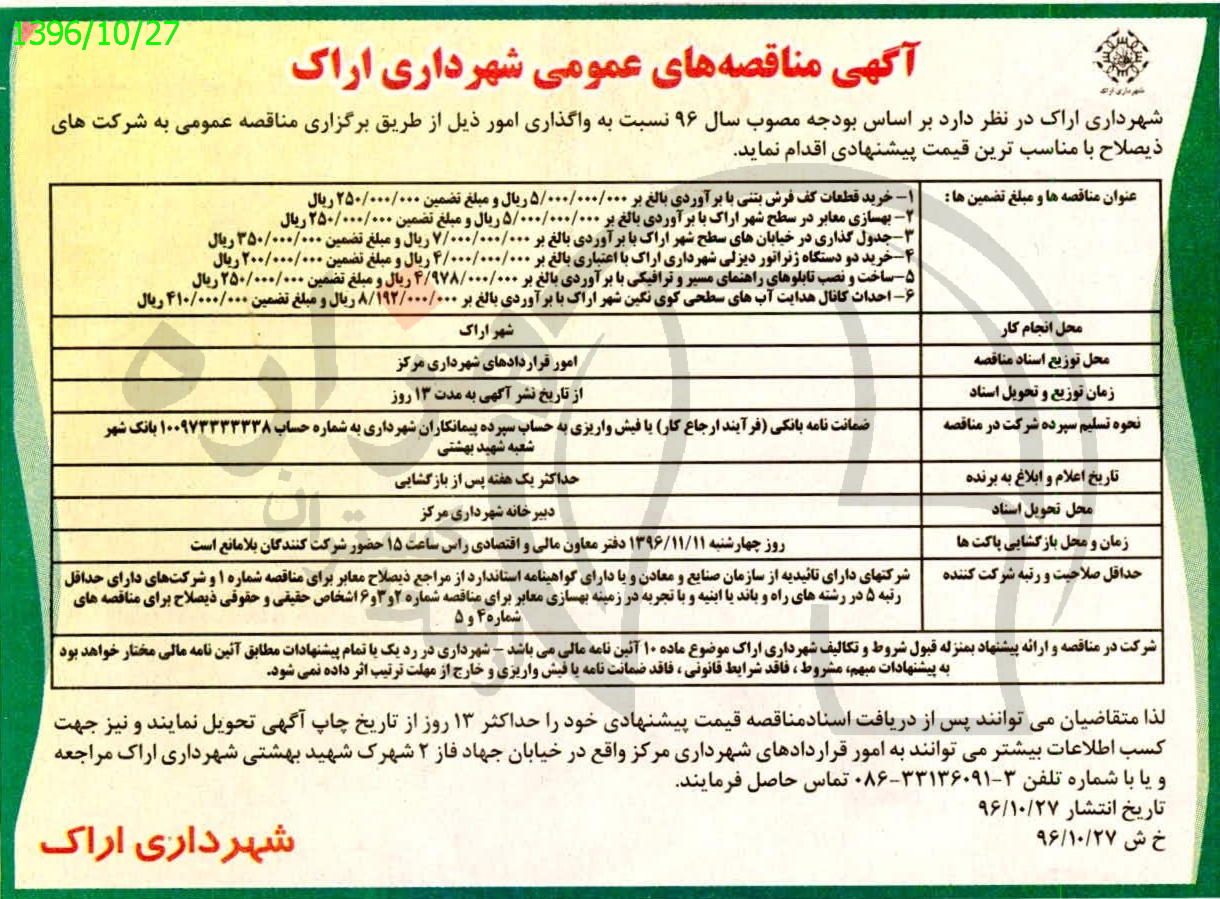 1396/10/27
شهرداری اراک
آگهی مناقصه‌های عمومی شهرداری اراک
شهرداری اراک در نظر دارد بر اساس بودجه مصوب سال ۹۶ نسبت به واگذاری امور ذیل از طریق برگزاری مناقصه عمومی به شرکت های
ذیصلاح با مناسب ترین قیمت پیشنهادی اقدام نماید.
عنوان مناقصه ها و مبلغ تضمین ها :
۱- خرید قطعات کف فرش بتنی با برآوردی بالغ بر ۵/۰۰۰/۰۰۰/۰۰۰ ریال و مبلغ تضمین ۲۵۰/۰۰۰/۰۰۰ ریال
۲- بهسازی معابر در سطح شهر اراک با برآوردی بالغ بر ۵/۰۰۰/۰۰۰/۰۰۰ ریال و مبلغ تضمین ۲۵۰/۰۰۰/۰۰۰ ریال
۳-جدول گذاری در خیابان های سطح شهر اراک با برآوردی بالغ بر ۷/۰۰۰/۰۰۰/۰۰۰ ریال و مبلغ تضمین ۳۵۰/۰۰۰/۰۰۰ ریال
۴-خرید دو دستگاه ژنراتور دیزلی شهرداری اراک با اعتباری بالغ بر ۴/۰۰۰/۰۰۰/۰۰۰ ریال و مبلغ تضمین ۲۰۰/۰۰۰/۰۰۰ ریال
۵-ساخت و نصب تابلوهای راهنمای مسیر و ترافیکی با برآوردی بالغ بر ۴/۹۷۸/۰۰۰/۰۰۰ ریال و مبلغ تضمین ۲۵۰/۰۰۰/۰۰۰ ریال
۶- احداث کانال هدایت آب های سطحی کوی نگین شهر اراک با برآوردی بالغ بر ۸/۱۹۲/۰۰۰/۰۰۰ ریال و مبلغ تضمین ۴۱۰/۰۰۰/۰۰۰ ریال
محل انجام کار شهر اراک
محل توزیع اسناد مناقصه امور قراردادهای شهرداری مرکز
زمان توزیع و تحویل اسناد از تاریخ نشر آگهی به مدت ۱۳ روز
نحوه تسلیم سپرده شرکت در مناقصه ضمانت نامه بانکی (فرآیند ارجاع کار) یا فیش واریزی به حساب سپرده پیمانکاران شهرداری به شماره حساب ۱۰۰۹۷۳۳۳۳۳۳۸ بانک شهر
شعبه شهید بهشتی
تاریخ اعلام و ابلاغ به برنده حداکثر یک هفته پس از بازگشایی
محل تحویل اسناد دبیرخانه شهرداری مرکز
زمان و محل بازگشایی پاکت ها روز چهارشنبه ۱۳۹۶/۱۱/۱۱ دفتر معاون مالی و اقتصادی راس ساعت ۱۵ حضور شرکت کنندگان بلامانع است
حداقل صلاحیت و رتبه شرکت کننده شرکتهای دارای تائیدیه از سازمان صنایع و معادن و یا دارای گواهینامه استاندارد از مراجع ذیصلاح معابر برای مناقصه شماره ۱ و شرکت‌های دارای حداقل
رتبه ۵ در رشته های راه و باند یا ابنیه و با تجربه در زمینه بهسازی معابر برای مناقصه شماره ۲و۳و۶ اشخاص حقیقی و حقوقی ذیصلاح برای مناقصه های
شماره۴ و ۵
شرکت در مناقصه و ارائه پیشنهاد بمنزله قبول شروط و تکالیف شهرداری اراک موضوع ماده ۱۰ آئین نامه مالی می باشد - شهرداری در رد یک یا تمام پیشنهادات مطابق آئین نامه مالی مختار خواهد بود
به پیشنهادات مبهم، مشروط ، فاقد شرایط قانونی ، فاقد ضمانت نامه یا فیش واریزی و خارج از مهلت ترتیب اثر داده نمی شود.
لذا متقاضیان می توانند پس از دریافت اسنادمناقصه قیمت پیشنهادی خود را حداکثر ۱۳ روز از تاریخ چاپ آگهی تحویل نمایند و نیز جهت
کسب اطلاعات بیشتر می توانند به امور قراردادهای شهرداری مرکز واقع در خیابان جهاد فاز ۲ شهرک شهید بهشتی شهرداری اراک مراجعه
و یا با شماره تلفن ۳-۳۳۱۳۶۰۹۱-۰۸۶ تماس حاصل فرمایند.
تاریخ انتشار ۹۶/۱۰/۲۷
خ ش ۹۶/۱۰/۲۷
شهرداری اراک